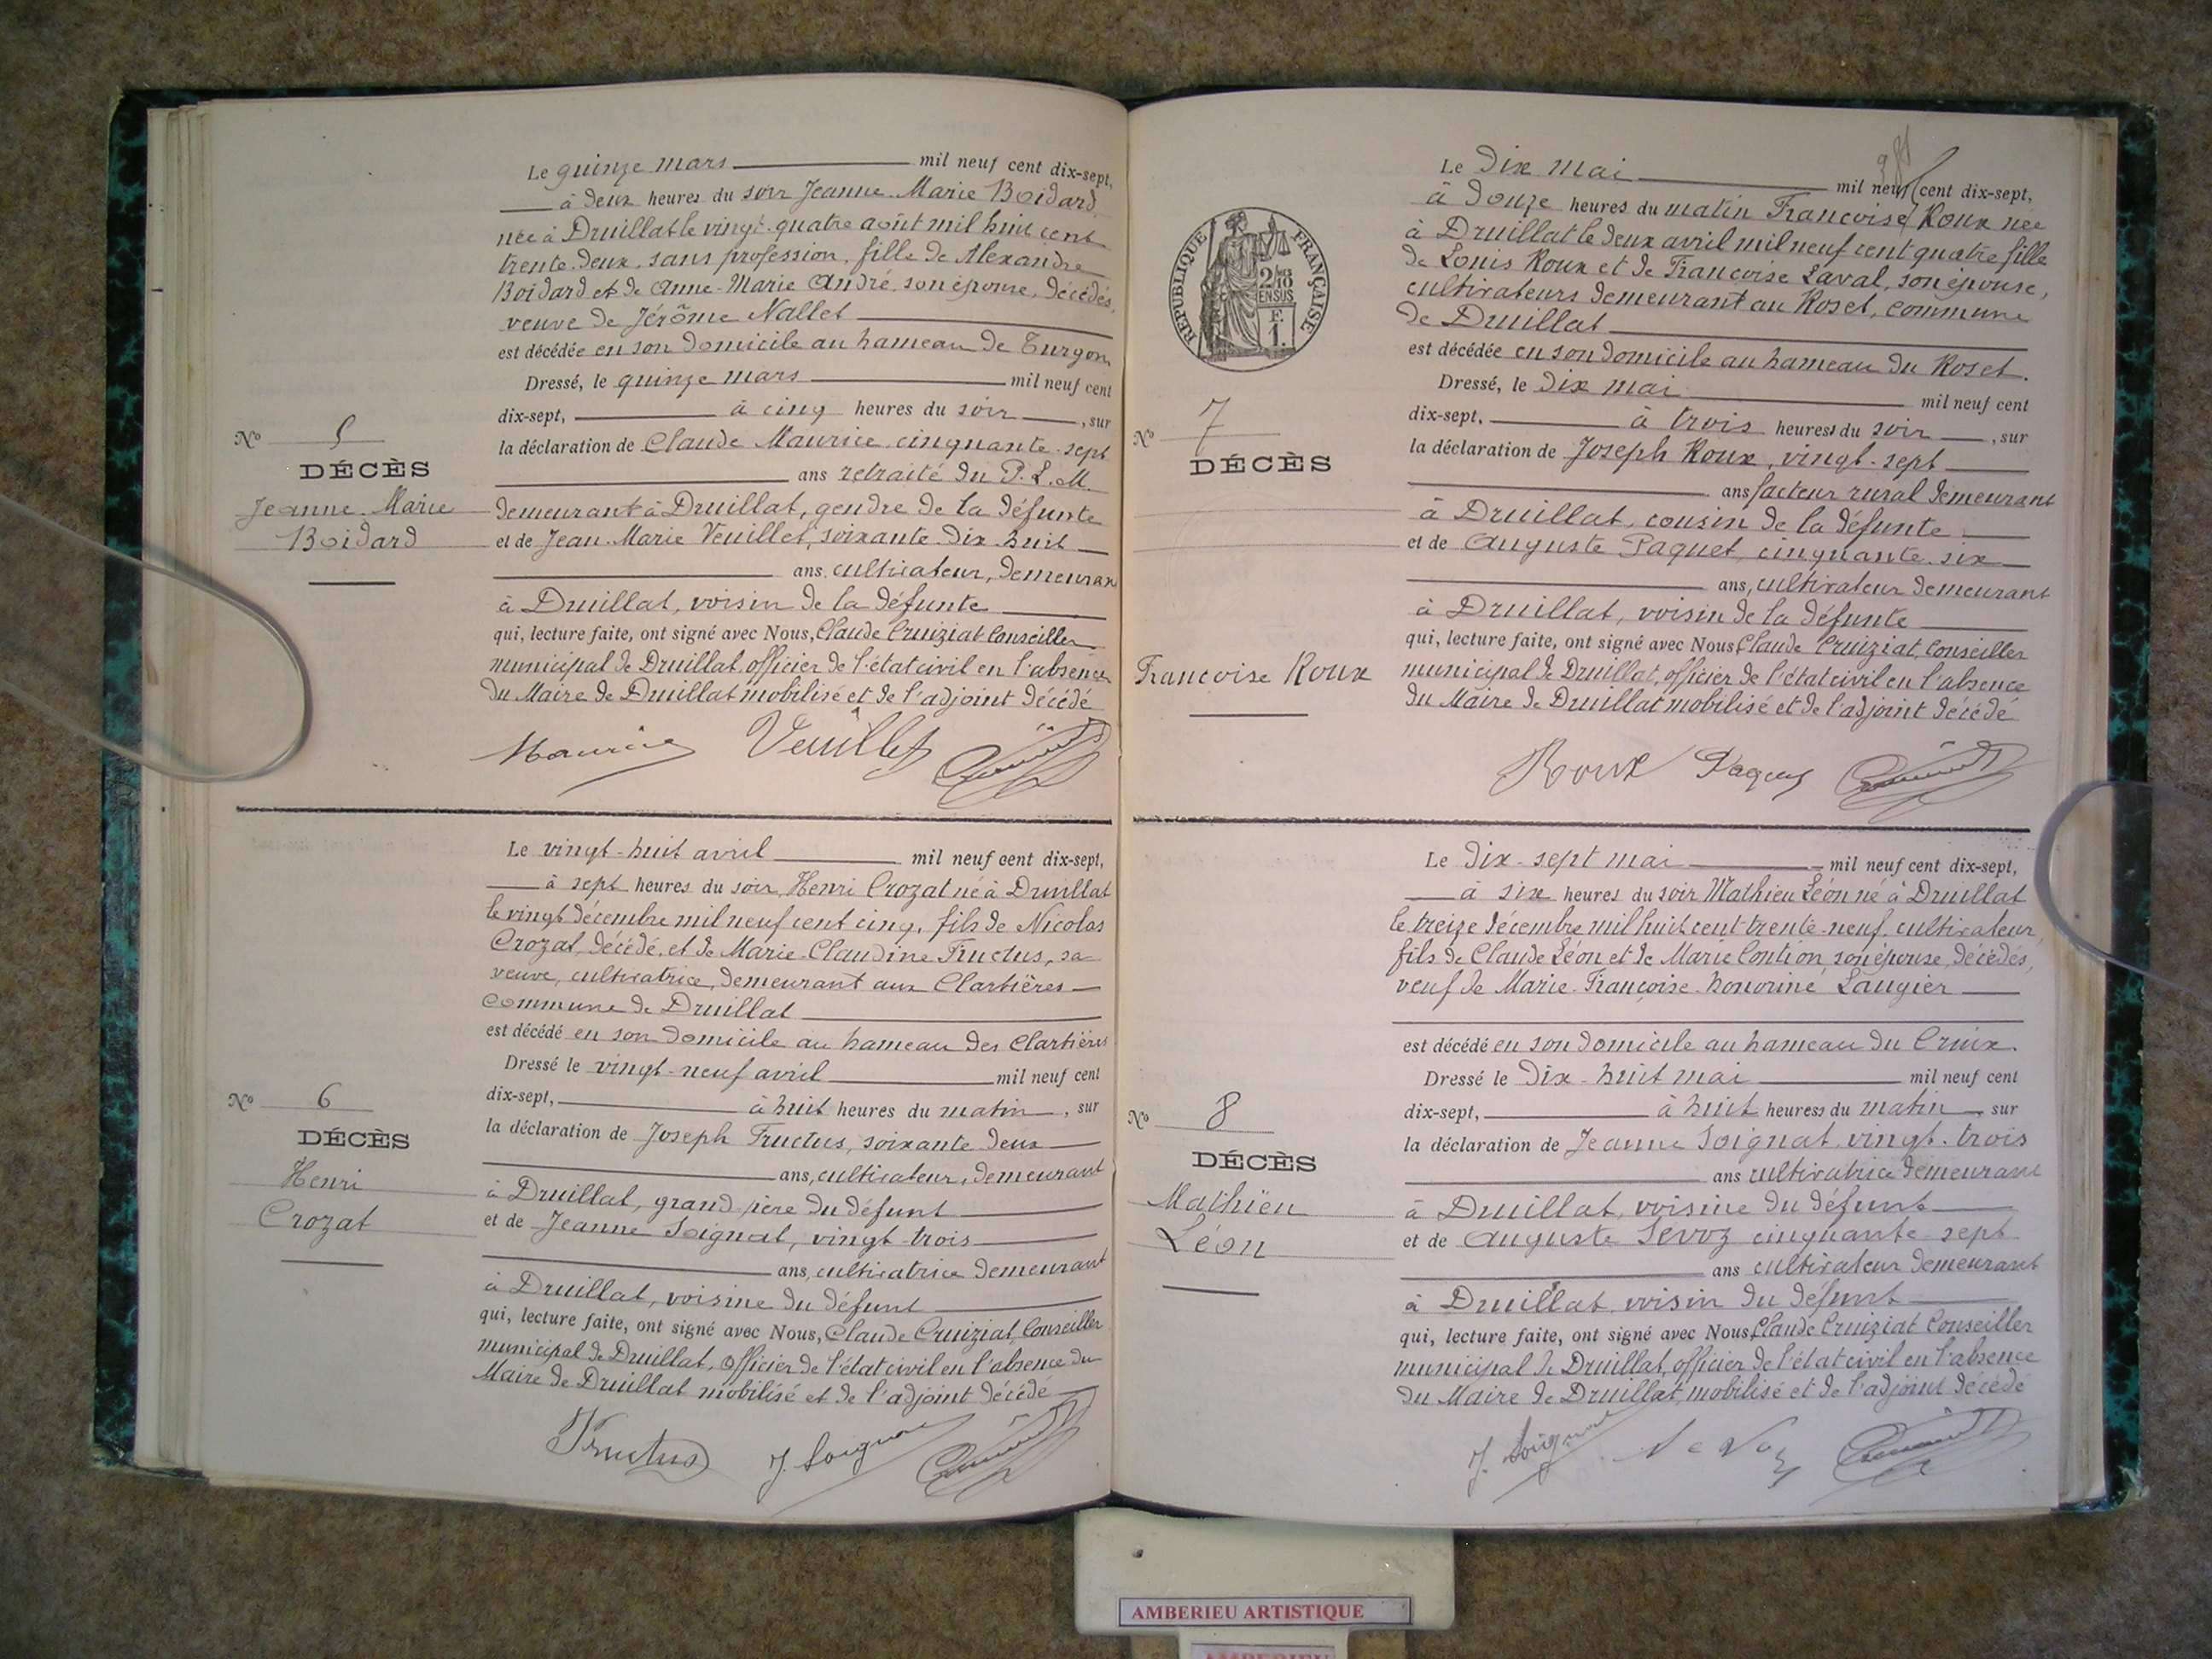 Le quinze mars mil neuf cent dix-sept,
à deux heures du soir Jeanne-Marie Boidard,
née à Druillat le vingt-quatre août mil huit cent
trente-deux, sans profession, fille de Alexandre
Boidard et de Anne-Marie André, son épouse, décédés,
veuve de Jérôme Nallet
est décédée en son domicile au hameau de Turgon
Dressé, le quinze mars mil neuf cent
dix-sept, à cinq heures du soir, sur
la déclaration de Claude Maurice, cinquante-sept
ans retraité du P.L.M.
demeurant à Druillat, gendre de la défunte
et de Jean-Marie Veuillet, soixante-dix-huit
ans, cultivateur, demeurant
à Druillat, voisin de la défunte
qui, lecture faite, ont signé avec Nous, Claude Cruiziat Conseiller
municipal de Druillat, officier de l'état civil en l'absence
du Maire de Druillat mobilisé et de l'adjoint décédé
Maurice Veuillet
No 5
DÉCÈS
Jeanne-Marie
Boidard
Le vingt-huit avril mil neuf cent dix-sept,
à sept heures du soir, Henri Crozat né à Druillat
le vingt décembre mil neuf cent cinq, fils de Nicolas
Crozat, décédé, et de Marie-Claudine Fructus, sa
veuve, cultivatrice, demeurant aux Clartières
commune de Druillat
est décédé en son domicile au hameau des Clartières
Dressé le vingt-neuf avril mil neuf cent
dix-sept, à huit heures du matin, sur
la déclaration de Joseph Fructus, soixante-deux
ans, cultivateur, demeurant
à Druillat, grand-père du défunt
et de Jeanne Soignat, vingt-trois
ans, cultivatrice demeurant
à Druillat, voisine du défunt
qui, lecture faite, ont signé avec Nous, Claude Cruiziat, Conseiller
municipal de Druillat, officier de l'état civil en l'absence du
Maire de Druillat mobilisé et de l'adjoint décédé
Fructus J. Soignat
No 6
DÉCÈS
Henri
Crozat
Le dix mai mil neuf cent dix-sept,
à douze heures du matin Francoise Roux née
à Druillat le deux avril mil neuf cent quatre fille
de Louis Roux et de Francoise Laval, son épouse,
cultivateurs demeurant au Roset, commune
de Druillat
est décédée en son domicile au hameau du Roset.
Dressé, le dix mai mil neuf cent
dix-sept, à trois heures du soir, sur
la déclaration de Joseph Roux, vingt-sept
ans facteur rural demeurant
à Druillat, cousin de la défunte
et de Auguste Paquet, cinquante-six
ans, cultivateur demeurant
à Druillat, voisin de la défunte
qui, lecture faite, ont signé avec Nous Claude Cruiziat, Conseiller
municipal de Druillat, officier de l'état civil en l'absence
du Maire de Druillat mobilisé et de l'adjoint décédé
Roux Paquet
RÉPUBLIQUE FRANÇAISE
2/10
EN SUS
F.
1.
No 7
DÉCÈS
Francoise Roux
Le dix-sept mai mil neuf cent dix-sept,
à six heures du soir Mathieu Léon né à Druillat
le treize décembre mil huit cent trente-neuf, cultivateur,
fils de Claude Léon et de Marie Contion, son épouse, décédés,
veuf de Marie-Françoise-honorine Laugier
est décédé en son domicile au hameau du Cruix.
Dressé le dix-huit mai mil neuf cent
dix-sept, à huit heures du matin, sur
la déclaration de Jeanne Soignat, vingt-trois
ans cultivatrice demeurant
à Druillat, voisine du défunt
et de Auguste Sevoz cinquante-sept
ans cultivateur demeurant
à Druillat, voisin du défunt
qui, lecture faite, ont signé avec Nous Claude Cruiziat Conseiller
municipal de Druillat, officier de l'état civil en l'absence
du Maire de Druillat, mobilisé et de l'adjoint décédé
J. Soignat Sevoz
No 8
DÉCÈS
Mathieu
Léon
AMBERIEU ARTISTIQUE
AMBERIEU